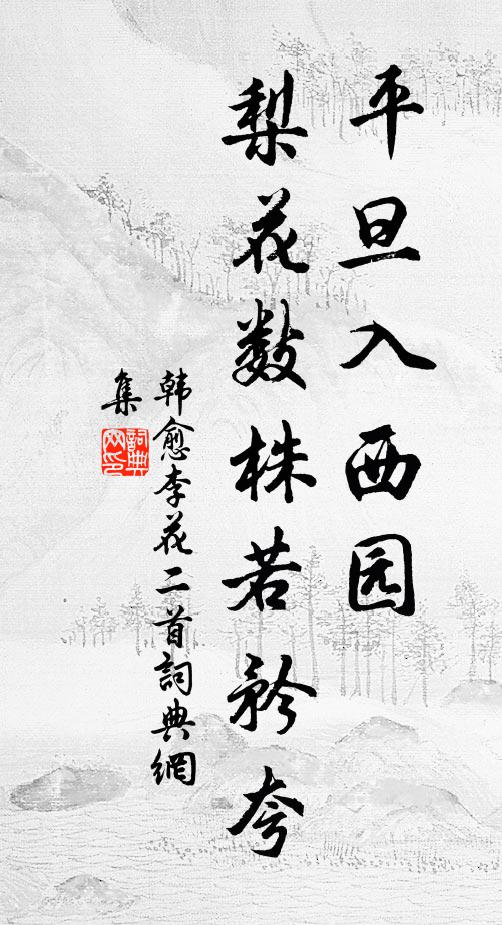 平旦入西园
梨花数株若矜夸
韩愈李花二首詞典網
集
詞典
网印